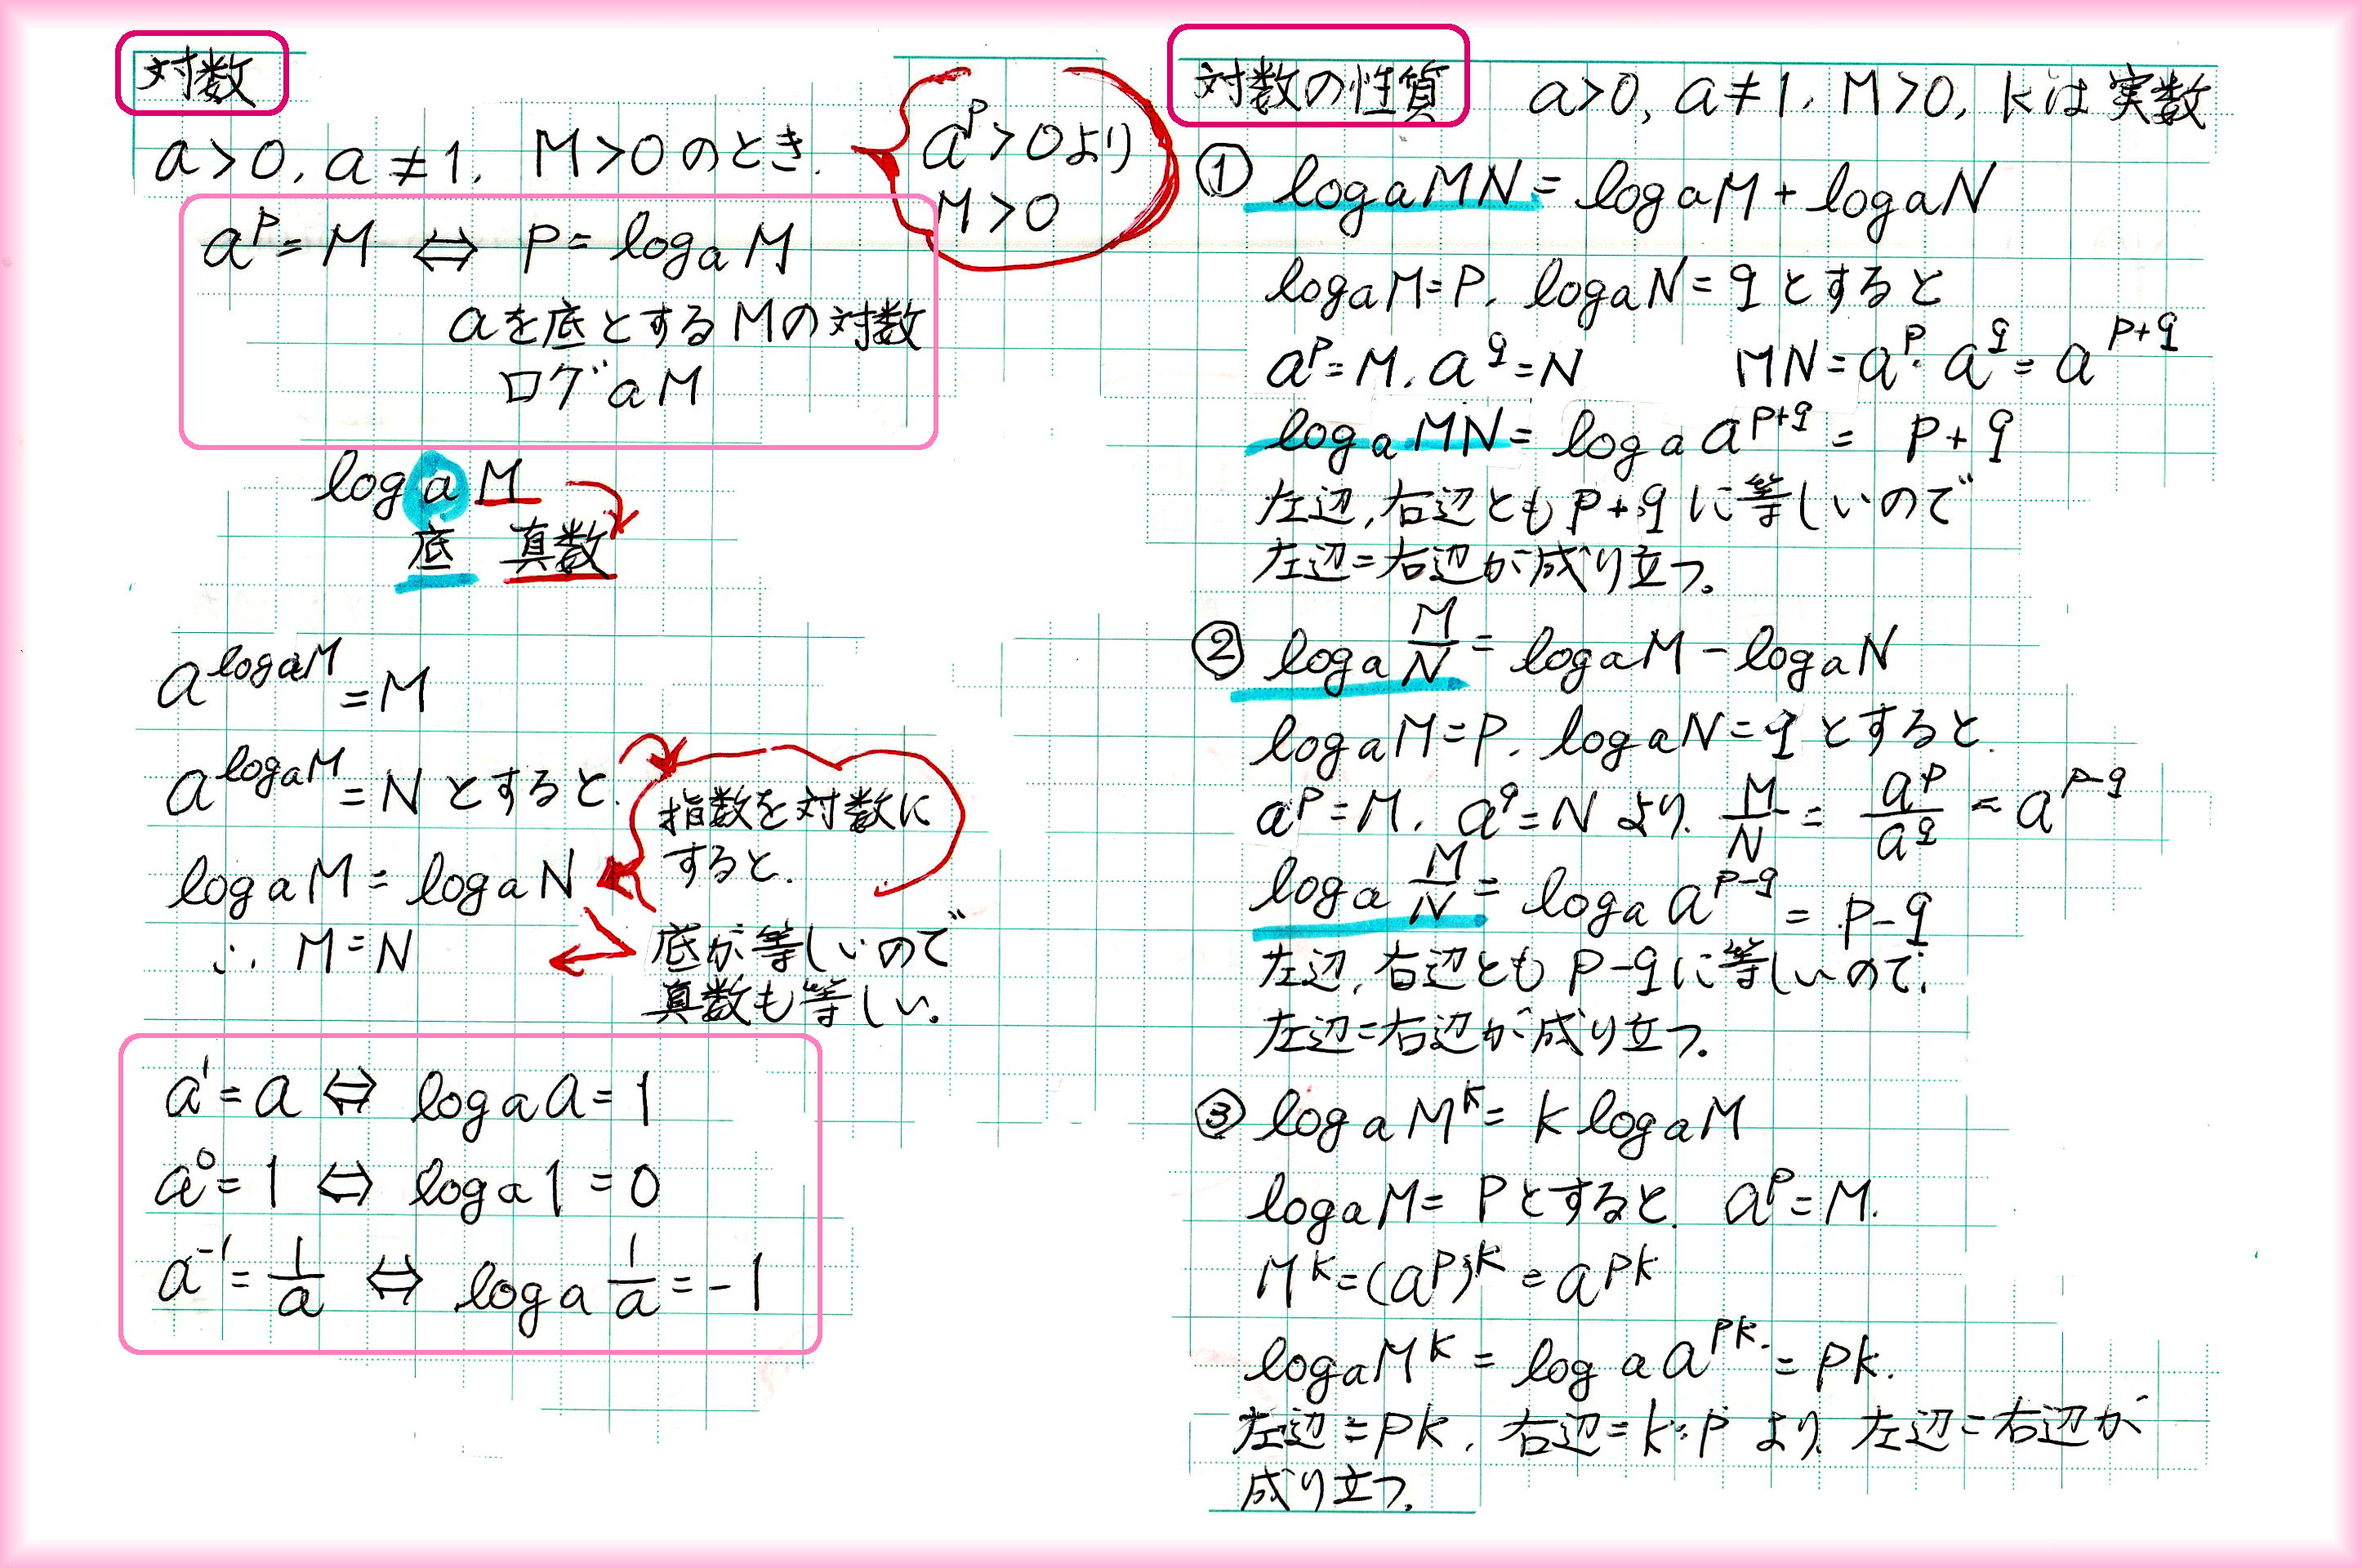 対数
a>0, a≠1, M>0のとき.
a^p>0より
M>0
a^p=M ⇔ p=log_a M
aを底とするMの対数
ログaM
log_a M
底 真数
a^{log_a M}=M
a^{log_a M}=Nとすると.
指数を対数に
すると.
log_a M=log_a N
∴ M=N
底が等しいので
真数も等しい。
a^1=a ⇔ log_a a=1
a^0=1 ⇔ log_a 1=0
a^{-1}=1/a ⇔ log_a 1/a=-1
対数の性質 a>0, a≠1, M>0, kは実数
① log_a MN=log_a M+log_a N
log_a M=p, log_a N=qとすると
a^p=M, a^q=N MN=a^p・a^q=a^{p+q}
log_a MN=log_a a^{p+q}=p+q
左辺,右辺ともp+qに等しいので
左辺=右辺が成り立つ。
② log_a M/N=log_a M-log_a N
log_a M=p, log_a N=qとすると.
a^p=M, a^q=Nより, M/N=a^p/a^q=a^{p-q}
log_a M/N=log_a a^{p-q}=p-q
左辺,右辺ともp-qに等しいので,
左辺=右辺が成り立つ。
③ log_a M^k=k log_a M
log_a M=pとすると, a^p=M.
M^k=(a^p)^k=a^{pk}
log_a M^k=log_a a^{pk}=pk.
左辺=pk, 右辺=k・pより, 左辺=右辺が
成り立つ。